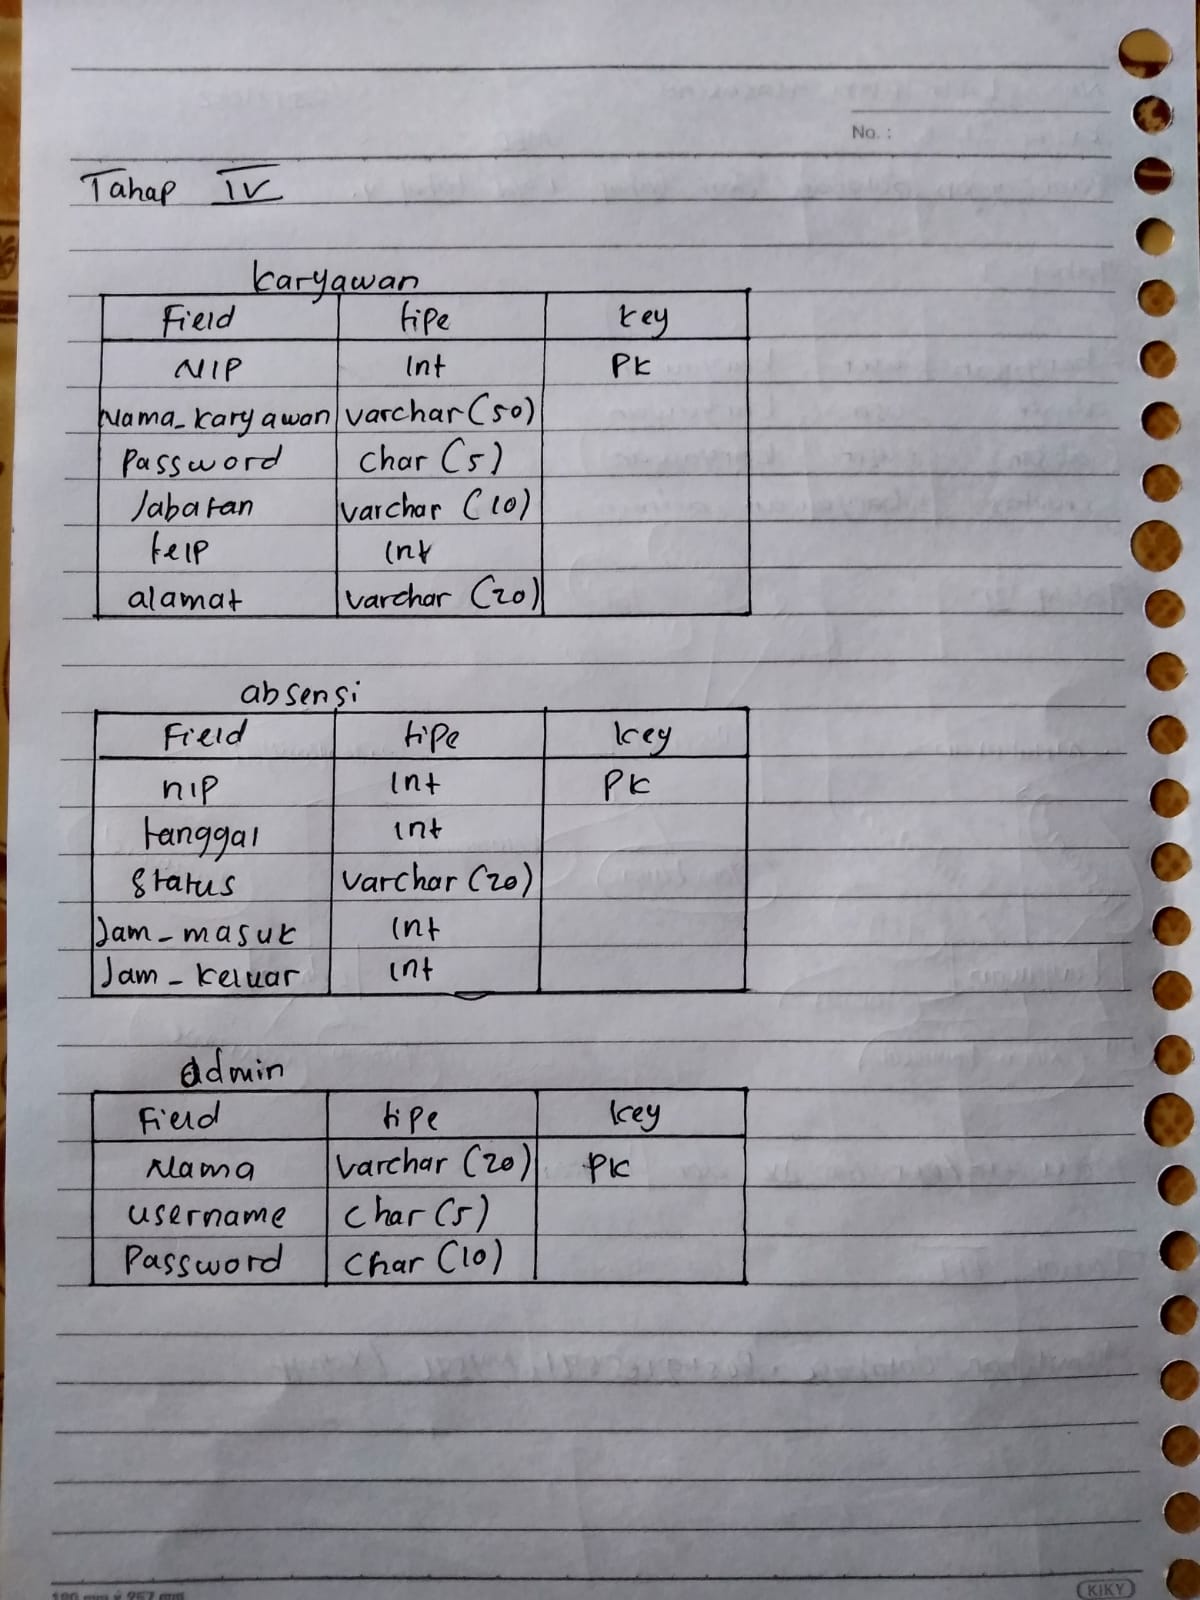 No. :
Tahap IV
karyawan
Field tipe key
NIP Int PK
Nama_karyawan varchar (50)
Password char (5)
Jabatan varchar (10)
telp Int
alamat varchar (20)
absensi
Field tipe key
nip Int PK
tanggal int
Status varchar (20)
Jam_masuk Int
Jam_keluar int
admin
Field tipe key
Nama varchar (20) PK
username char (5)
Password char (10)
KIKY